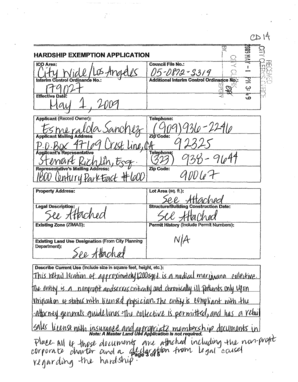 CD 14
HARDSHIP EXEMPTION APPLICATION
ICO Area:
City Wide/Los Angeles
Council File No.:
05-0872-S319
Interim Control Ordinance No.:
179027
Additional Interim Control Ordinance No.:
Effective Date:
May 1, 2009
Applicant (Record Owner):
Esmeralda Sanchez
Telephone:
(909)936-2246
Applicant Mailing Address
P.O. Box 47109 Crest Line, CA
Zip Code:
92325
Applicant's Representative
Stewart Richlin, Esq.
Telephone:
(323) 938-9644
Representative's Mailing Address:
1800 Century Park East #600
Zip Code:
90067
Property Address:
Lot Area (sq. ft.):
See Attached
Legal Description:
See Attached
Structure/Building Construction Date:
See Attached
Existing Zone (ZIMAS):
Permit History (Include Permit Numbers):
N/A
Existing Land Use Designation (From City Planning Department):
See Attached
Describe Current Use (Include size in square feet, height, etc.):
This retail station of approximately 1200 sq ft is a medical marijuana collective.
The entity is a nonprofit and serves critically and chronically ill patients only upon
verification of status with licensed physician. The entity is compliant with the
attorney generals guidelines. The collective is permitted, and has a retail
sales license with insurance and appropriate membership documents in
Note: A Master Land Use Application is not required.
Place. All of those documents are attached including the non-profit
corporate charter and a declaration from legal counsel
Page 3 of 5
regarding the hardship.